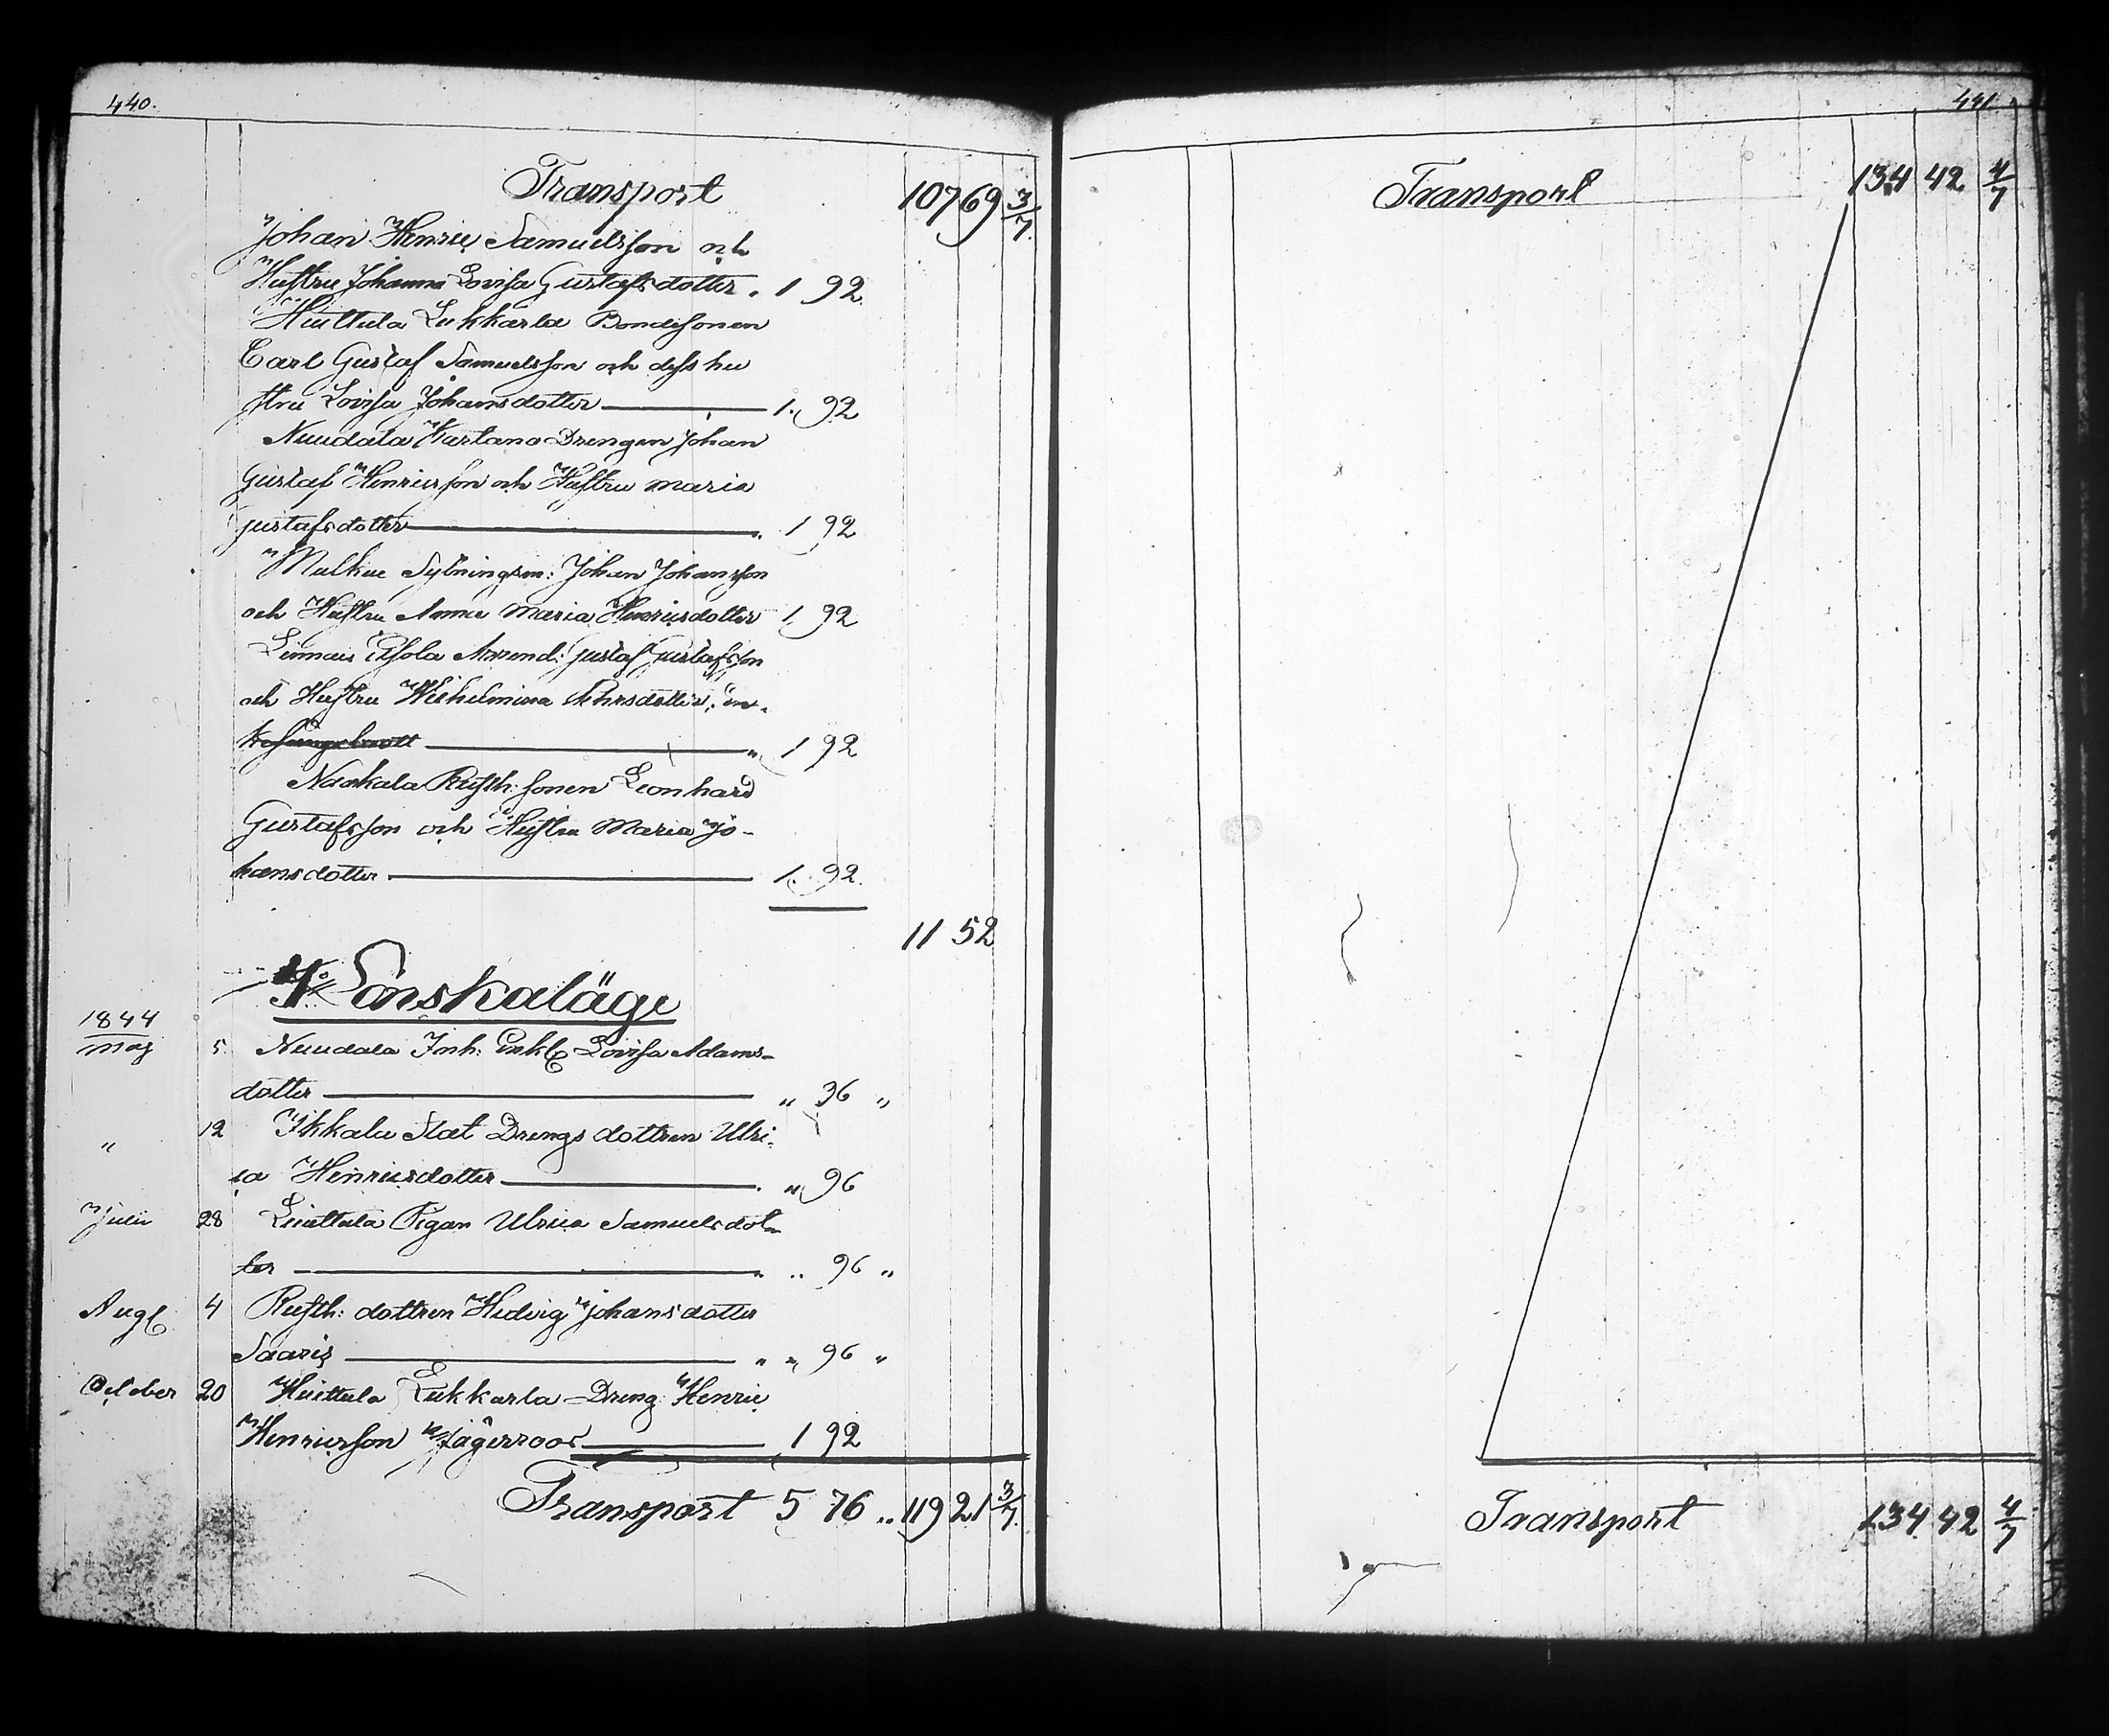 440.
Transport 107 69 3/7.
Johan Henric Samuelsson och
Hustru Johanna Lovisa Gustafsdotter. 1 92.
Huittula Lukkarla Bondesonen
Carl Gustaf Samuelsson och dess hu
stru Lovisa Johansdotter 1. 92
Nuudala Kartano Drengen Johan
Gustaf Henricsson och Hustru Maria
Gustafsdotter 1 92
Johan Johansson
och Hustru Anna Maria Henricsdotter 1 92
Arrend: Gustaf Gustafsson
och Hustru Wilhelmina
1 92
Naakala Rusth: sonen Leonhard
Gustafsson och Hustru Maria Jo-
hansdotter 1. 92.
11 52
1844
Maj 5. Nuudala Inh: Lovisa Adams-
dotter " 36 "
" 12 Ikkala Stat Drengs dottren Ulri-
ca Henricsdotter " 96
Julii 28 Liuttula Pigan Ulrica Samuelsdot-
ter " 96 "
Aug 4 Rusth: dottren Hedvig Johansdotter
Saaris " " 96 "
October 20 Huittula Lukkarla Dreng Henric
Henricsson Jägerroos 1 92
Transport 5 76 " 119 21 3/7.
441.
Transport 134 42 4/7
Transport 134 42 4/7